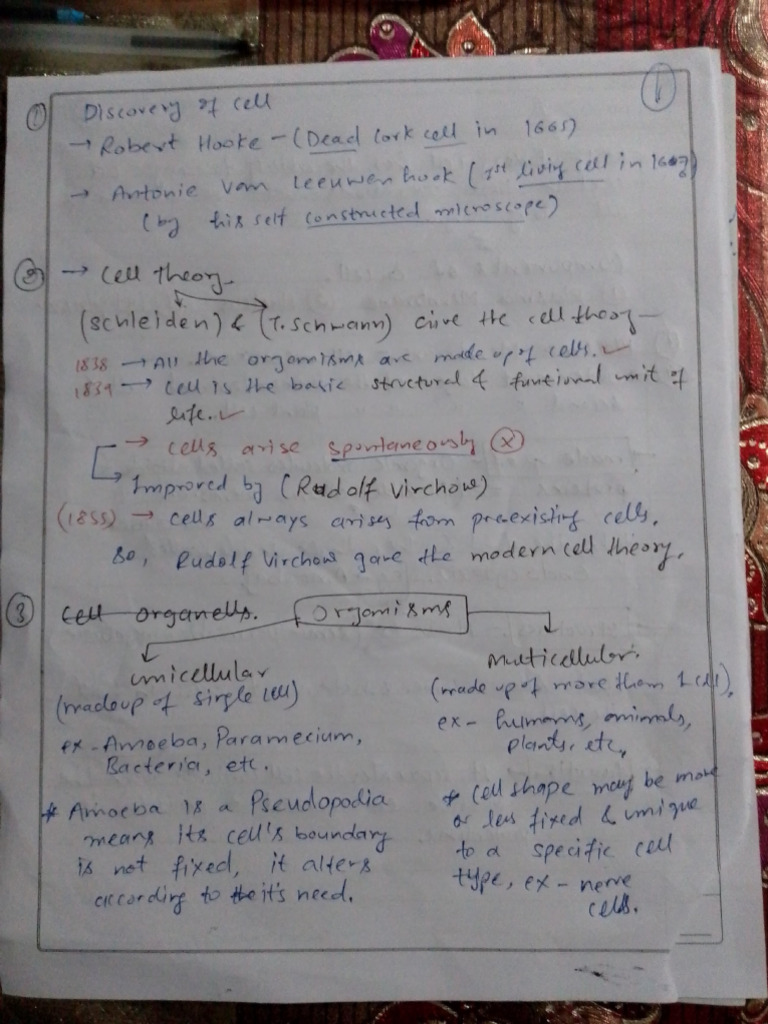 ①
① Discovery of cell
→ Robert Hooke - (Dead Cork cell in 1665)
→ Antonie Van Leeuwenhook (1st living cell in
(by his self constructed microscope)
② → Cell theory -
(Schleiden) & (T. Schwann) Give the cell theory -
1838 → All the organisms are made up of cells. ✓
1839 → Cell is the basic structural & funtional unit of
life. ✓
→ cells arise spontaneously ⓧ
→ Improved by (Rudolf Virchow)
(1855) → cells always arises from pre-existing cells.
So, Rudolf Virchow gave the modern cell theory.
③ Cell organells. Organisms
unicellular
(madeup of single cell)
ex - Amoeba, Paramecium,
Bacteria, etc.
* Amoeba is a Pseudopodia
means its cell's boundary
is not fixed, it alters
according to the it's need.
Multicellular.
(made up of more than 1 cell).
ex - humans, animals,
plants, etc,
* Cell shape may be more
or less fixed & unique
to a specific cell
type, ex - nerve
cells.